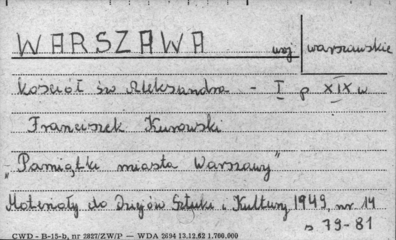 WARSZAWA woj. warszawskie
Kościół św Aleksandra - I p XIX w
Franciszek Kurowski
„Pamiątki miasta Warszawy"
Materiały do Dziejów Sztuki i Kultury 1949, nr 14
s 79-81
CWD - B-15-b, nr 2827/ZW/P — WDA 2694 13.12.52 1.700.000